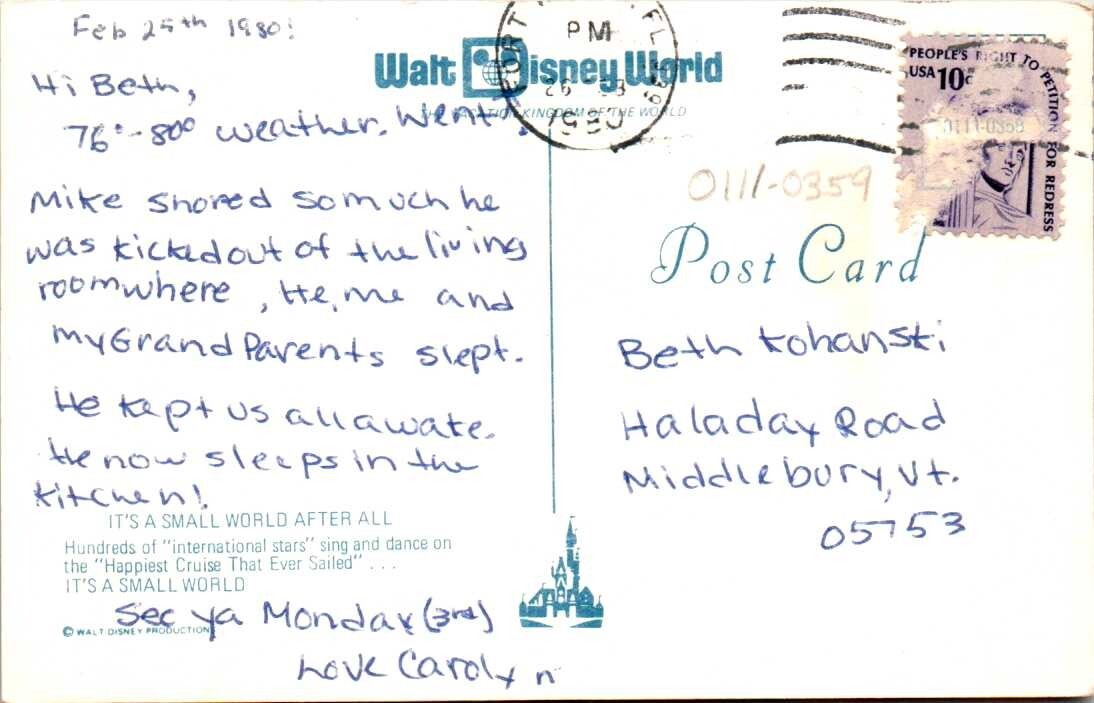 Feb 25th 1980!
Walt Disney World
THE VACATION KINGDOM OF THE WORLD
FORT FL
PM
26
1980
PEOPLE'S RIGHT TO PETITION FOR REDRESS
USA 10c
0111-0359
0111-0359
Post Card
Hi Beth,
76°-80° weather. Went
Mike snored somuch he
was kickedout of the living
roomwhere, He, me and
myGrandParents slept.
He kept us allawake.
He now sleeps in the
kitchen!
IT'S A SMALL WORLD AFTER ALL
Hundreds of "international stars" sing and dance on
the "Happiest Cruise That Ever Sailed" . . .
IT'S A SMALL WORLD
See ya Monday (3rd)
© WALT DISNEY PRODUCTIONS
Love Carolyn
Beth Kohanski
Haladay Road
Middlebury, Vt.
05753